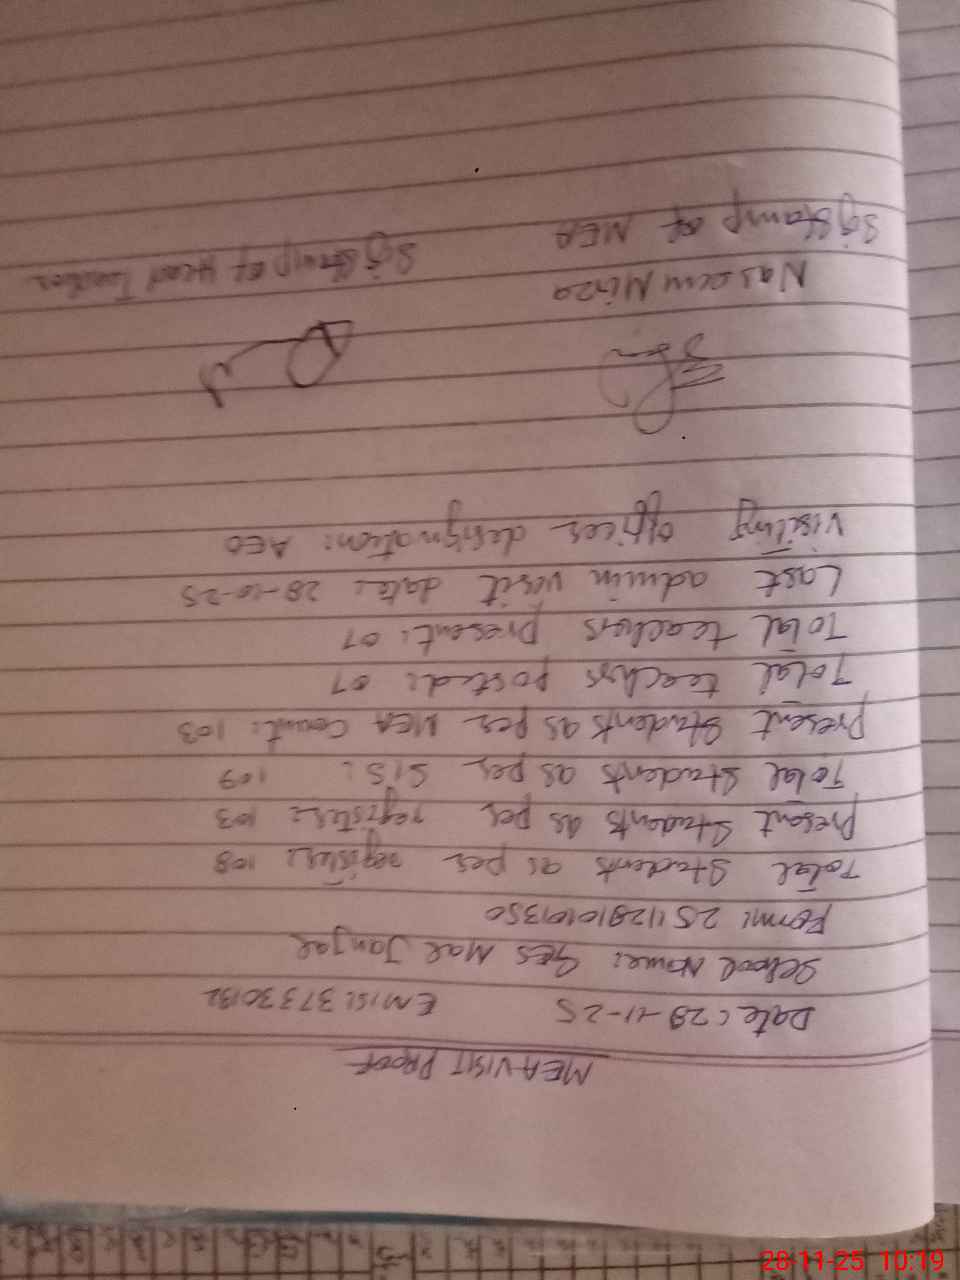 MEA VISIT PROOF
Date: 28-11-25 EMIS: 37330132
School Name: GES Mal Janjal
Form: 25112810101350
Total Students as per register: 108
Present Students as per register: 103
Total Students as per SIS: 109
Present Students as per MEA Count: 103
Total teachrs posted: 07
Total teachrs present: 07
Last admin visit date: 28-10-25
Visiting officer designation: AEO
Naseem Mirza
Sg Stamp of MEA Sg Stamp of Head Teacher
28-11-25 10:19